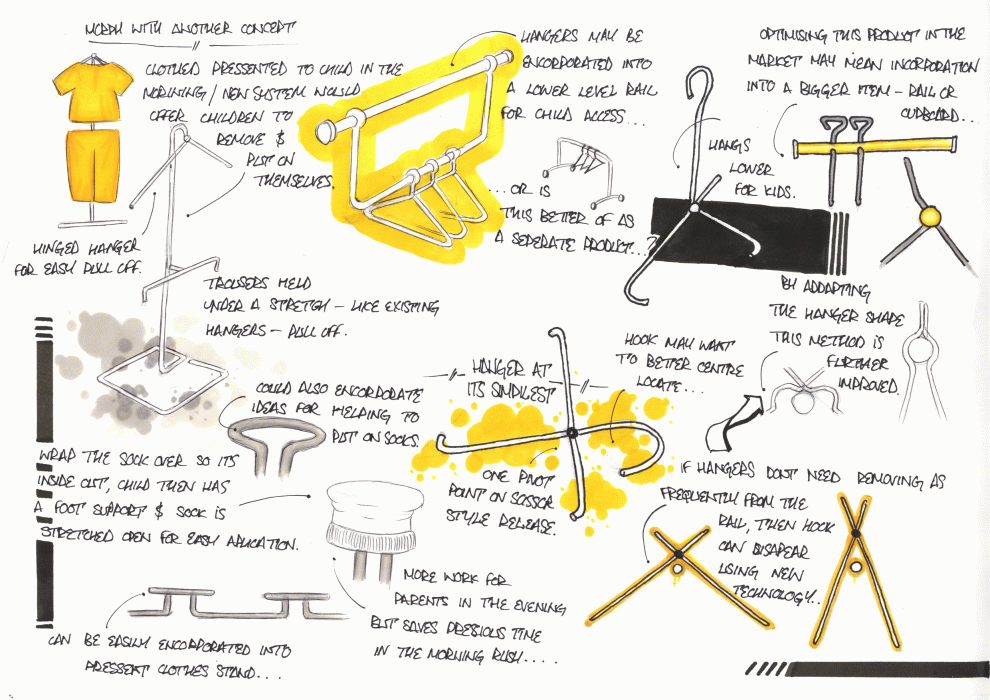 MORPH WITH ANOTHER CONCEPT
CLOTHED PRESSENTED TO CHILD IN THE
MORINING / NEW SYSTEM WOULD
OFFER CHILDREN TO
REMOVE &
PUT ON
THEMSELVES.
HINGED HANGER
FOR EASY PULL OFF.
TROUSERS HELD
UNDER A STRETCH - LIKE EXISTING
HANGERS - PULL OFF.
HANGERS MAY BE
ENCORPORATED INTO
A LOWER LEVEL RAIL
FOR CHILD ACCESS...
...OR IS
THIS BETTER OF AS
A SEPERATE PRODUCT...?
HANGS
LOWER
FOR KIDS.
OPTIMISING THIS PRODUCT IN THE
MARKET MAY MEAN INCORPORATION
INTO A BIGGER ITEM - RAIL OR
CUPBOARD...
BY ADDAPTING
THE HANGER SHAPE
THIS METHOD IS
FURTHER
IMPROVED.
HANGER AT
ITS SIMPLEST
HOOK MAY WANT
TO BETTER CENTRE
LOCATE...
ONE PIVOT
POINT ON SCISSOR
STYLE RELEASE.
COULD ALSO ENCORPORATE
IDEAS FOR HELPING TO
PUT ON SOCKS.
WRAP THE SOCK OVER SO ITS
INSIDE OUT, CHILD THEN HAS
A FOOT SUPPORT & SOCK IS
STRETCHED OPEN FOR EASY APLICATION.
MORE WORK FOR
PARENTS IN THE EVENING
BUT SAVES PRESIOUS TIME
IN THE MORNING RUSH....
CAN BE EASILY ENCORPORATED INTO
PRESSENT CLOTHES STAND....
IF HANGERS DONT NEED REMOVING AS
FREQUENTLY FROM THE
RAIL, THEN HOOK
CAN DISAPEAR
USING NEW
TECHNOLOGY..